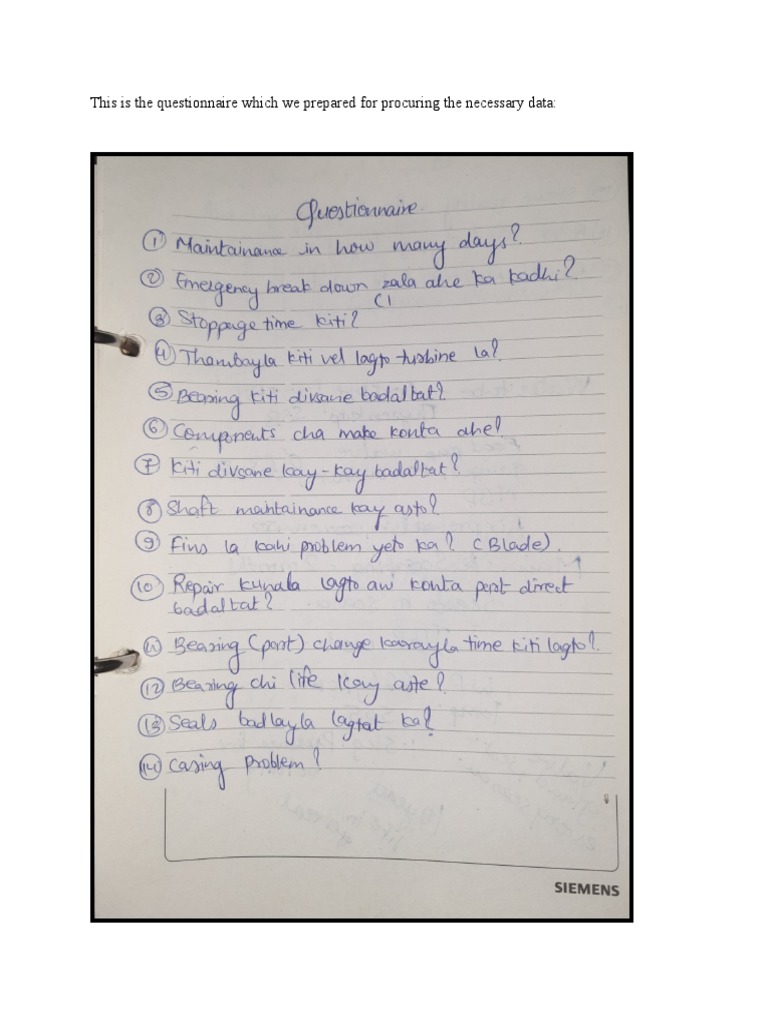 This is the questionnaire which we prepared for procuring the necessary data:
Questionnaire
1 Maintainance in how many days?
2 Emergency break down zala ahe ka kadhi?
3 Stoppage time kiti?
4 Thambayla kiti vel lagto turbine la?
5 Bearing kiti divsane badaltat?
6 Components cha make konta ahe?
7 Kiti divsane kay-kay badaltat?
8 Shaft maintainance kay asto?
9 Fins la kahi problem yeto ka? (Blade).
10 Repair kunala lagto ani konta part direct
badaltat?
11 Bearing (part) change karayla time kiti lagto?
12 Bearing chi life kay aste?
13 Seals badlayla lagtat ka?
14 Casing problem?
SIEMENS